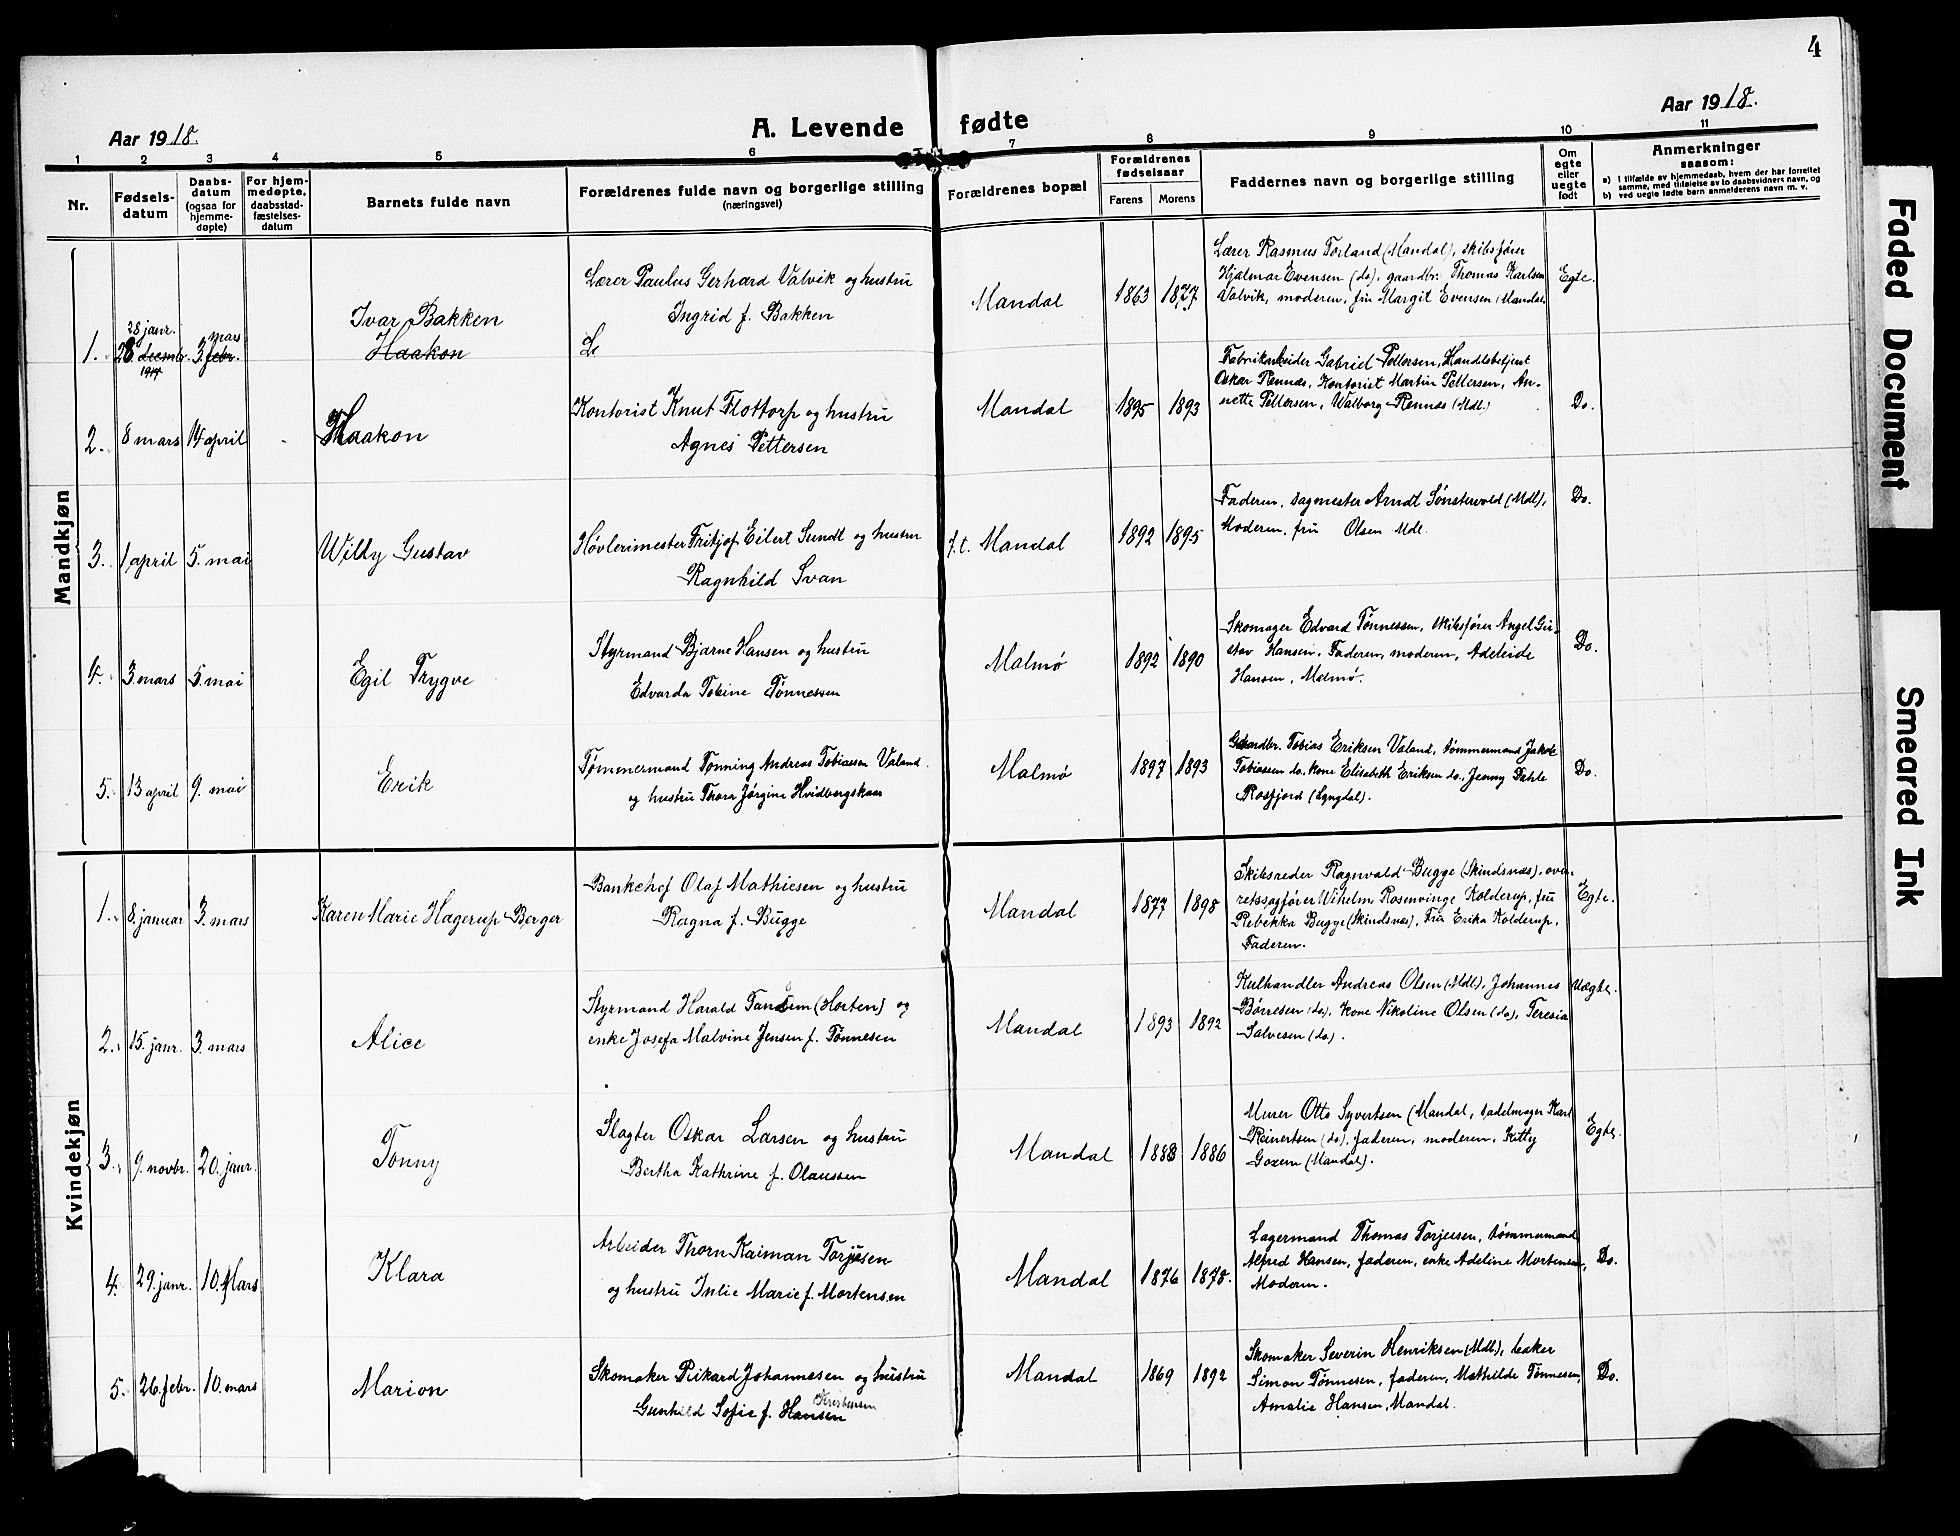 4
Aar 1918.
A. Levende fødte
Aar 1918.
1 2 3 4 5 6 7 8 9 10 11
Nr.
Fødsels-
datum
Daabs-
datum
(ogsaa for
hjemme-
døpte)
For hjem-
medøpte,
daabsstad-
fæstelses-
datum
Barnets fulde navn
Forældrenes fulde navn og borgerlige stilling
(næringsvei)
Forældrenes bopæl
Forældrenes
fødselsaar
Farens Morens
Faddernes navn og borgerlige stilling
Om
egte
eller
uegte
født
Anmerkninger
saasom:
a) I tilfælde av hjemmedaab, hvem der har forrettet
samme, med tilføielse av to daabsvidners navn, og
b) ved uegte fødte børn anmelderens navn m. v.
Mandkjøn
1. 28 janr. 28 decmbr. 1917 3. mars febr.
Ivar Bakken
Haakon
Lærer Paulus Gerhard Valvik og hustru
Ingrid f. Bakken
L
Mandal 1863 1877
Lærer Rasmus Torland (Mandal), skibsfører
Hjalmar Evensen (do), gaardbr. Thomas Karlsen
Valvik, moderen, fru Margit Evensen Mandal.
Egte.
2. 8 mars 14 april -
Haakon
Kontorist Knut Flottorp og hustru
Agnes Pettersen
Mandal 1895 1893
Fabrikarbeider Gabriel Pettersen, Handelsbetjent
Oskar Rennas, Kontorist Martin Pettersen, An-
nette Pettersen, Walborg Rennas (Mdl.)
Do.
3. 1 april 5. mai
Willy Gustav
Høvlerimester Fritjof Eilert Sundt og hustru
Ragnhild Svan
f.t. Mandal 1892 1895
Faderen, Sagmester Arndt Sønstevold (Mdl),
Moderen, fru Olsen Mdl.
Do.
4. 3. mars 5. mai
Egil Trygve
Styrmand Bjarne Hansen og hustru
Edvarda Tobine Tønnessen
Malmø 1892 1890
Skomager Edvard Tønnessen, skibsfører Angel Gu-
stav Hansen, Faderen, moderen, Adeleide
Hansen, Malmø.
Do.
5. 13 april 9. mai
Erik
Tømmermand Tønning Andreas Tobiassen Valand
og hustru Thora Jørgine Hvidbergskaar
Malmø 1897 1893
Gaardbr. Tobias Eriksen Valand, tømmermand Jakob
Tobiassen do, kone Elisabeth Eriksen do., Jenny
Rosfjord (Lyngdal).
Do.
Kvindekjøn
1. 8. januar 3. mars
Karen Marie Hagerup Berger
Bankchef Olaf Mathiesen og hustru
Ragna f. Bugge
Mandal 1877 1898
Skibsreder Ragnvald Bugge (Skindsnæs), over-
retssagfører Wilhelm Rosenvinge Kolderup, fru
Rebekka Bugge (Skindsnæs), Fru Erika Kolderup,
Faderen.
Egte.
2. 15. janr. 3. mars
Alice
Styrmand Harald (Horten) og
enke Josefa Malvine Jensen f. Tønnesen
Mandal 1893 1892
Kulhandler Andreas Olsen (Mdl), Johannes
Børresen (do), Kone Nikoline Olsen (do), Teresia
Salvesen (do).
Uegte.
3. 9. novbr. 20. janr.
Tonny
Slagter Oskar Larsen og hustru
Bertha Kathrine f. Olaussen
Mandal 1888 1886
Murer Otto Syvertsen (Mandal, sadelmager Karl
Reinertsen (do), faderen, moderen, Kitty
(Mandal).
Egte.
4. 29. janr. 10. Mars
Klara
Arbeider Thorn Kaiman Torjusen
og hustru Inlie Marie f. Mortensen
Mandal 1876 1878.
Lagermand Thomas Torjusen, tømmermand
Alfred Hansen, faderen, enke Adeline Mortensen,
Moderen.
Do.
5. 26. febr. 10. mars
Marion
Skomaker Rikard Johannesen og hustru
Gunhild Sofie f. Hansen Kristensen
Mandal 1869 1892
Skomaker Severin Henriksen (Mdl), baker
Simon Tønnesen, faderen, Mathilde Tønnesen,
Amalie Hansen, Mandal.
Do.
Faded Document
Smeared Ink